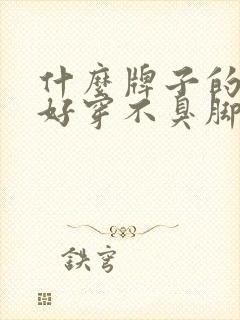 什麼牌子的
好穿不臭脚
鉄穹